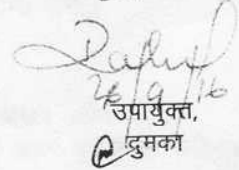 26/9/16
उपायुक्त,
दुमका